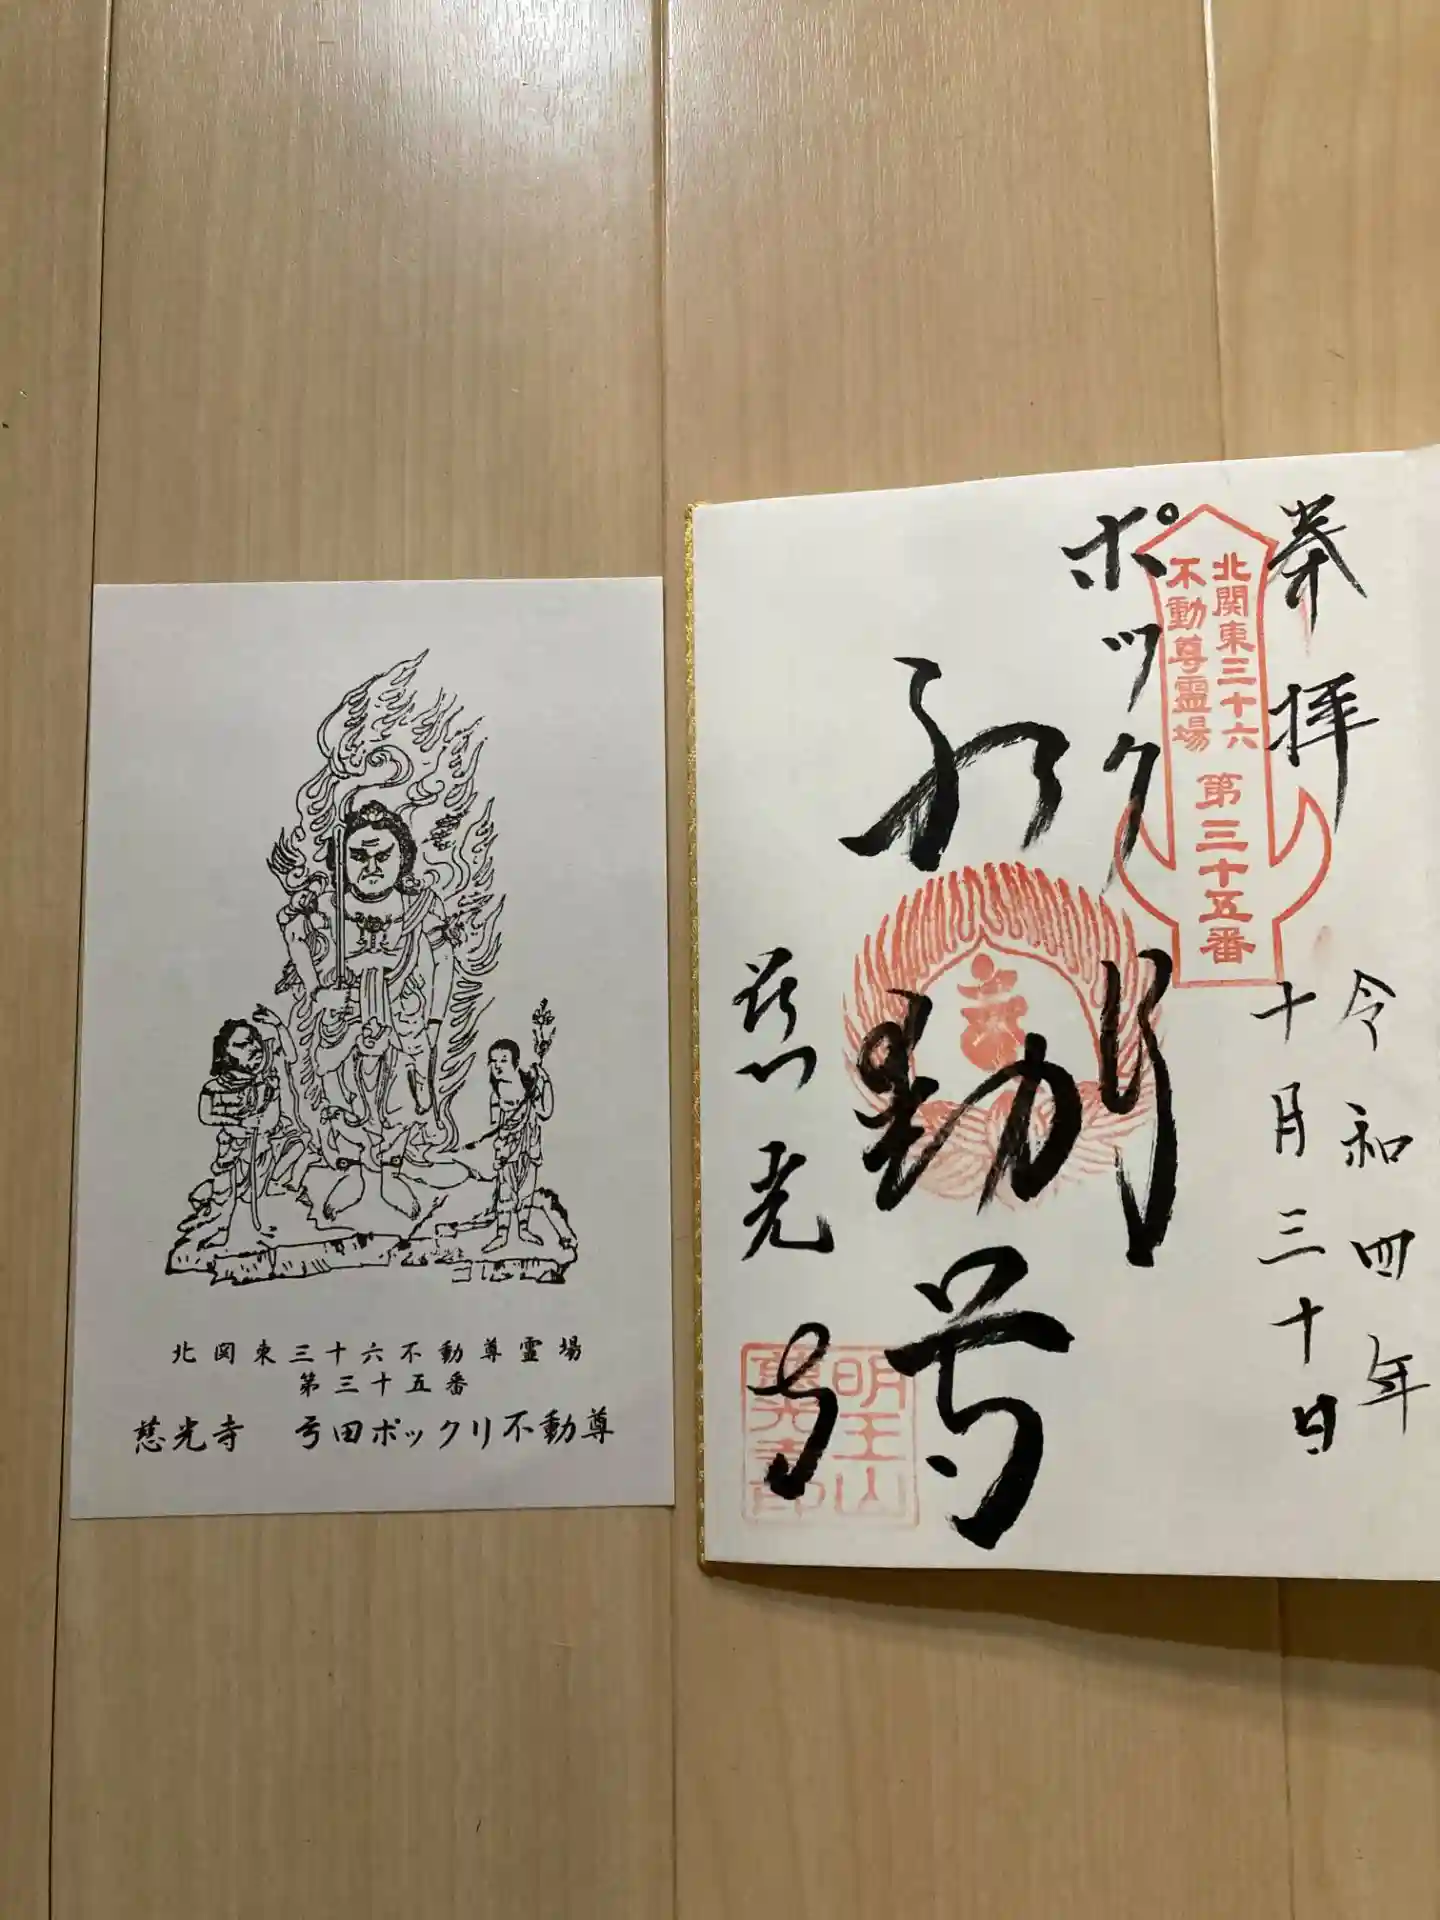 北関東三十六不動尊霊場
第三十五番
慈光寺 弓田ポックリ不動尊
奉拝
令和四年
十月三十日
北関東三十六
不動尊霊場
第三十五番
ポックリ
不動尊
慈光寺
明王山
慈光寺印